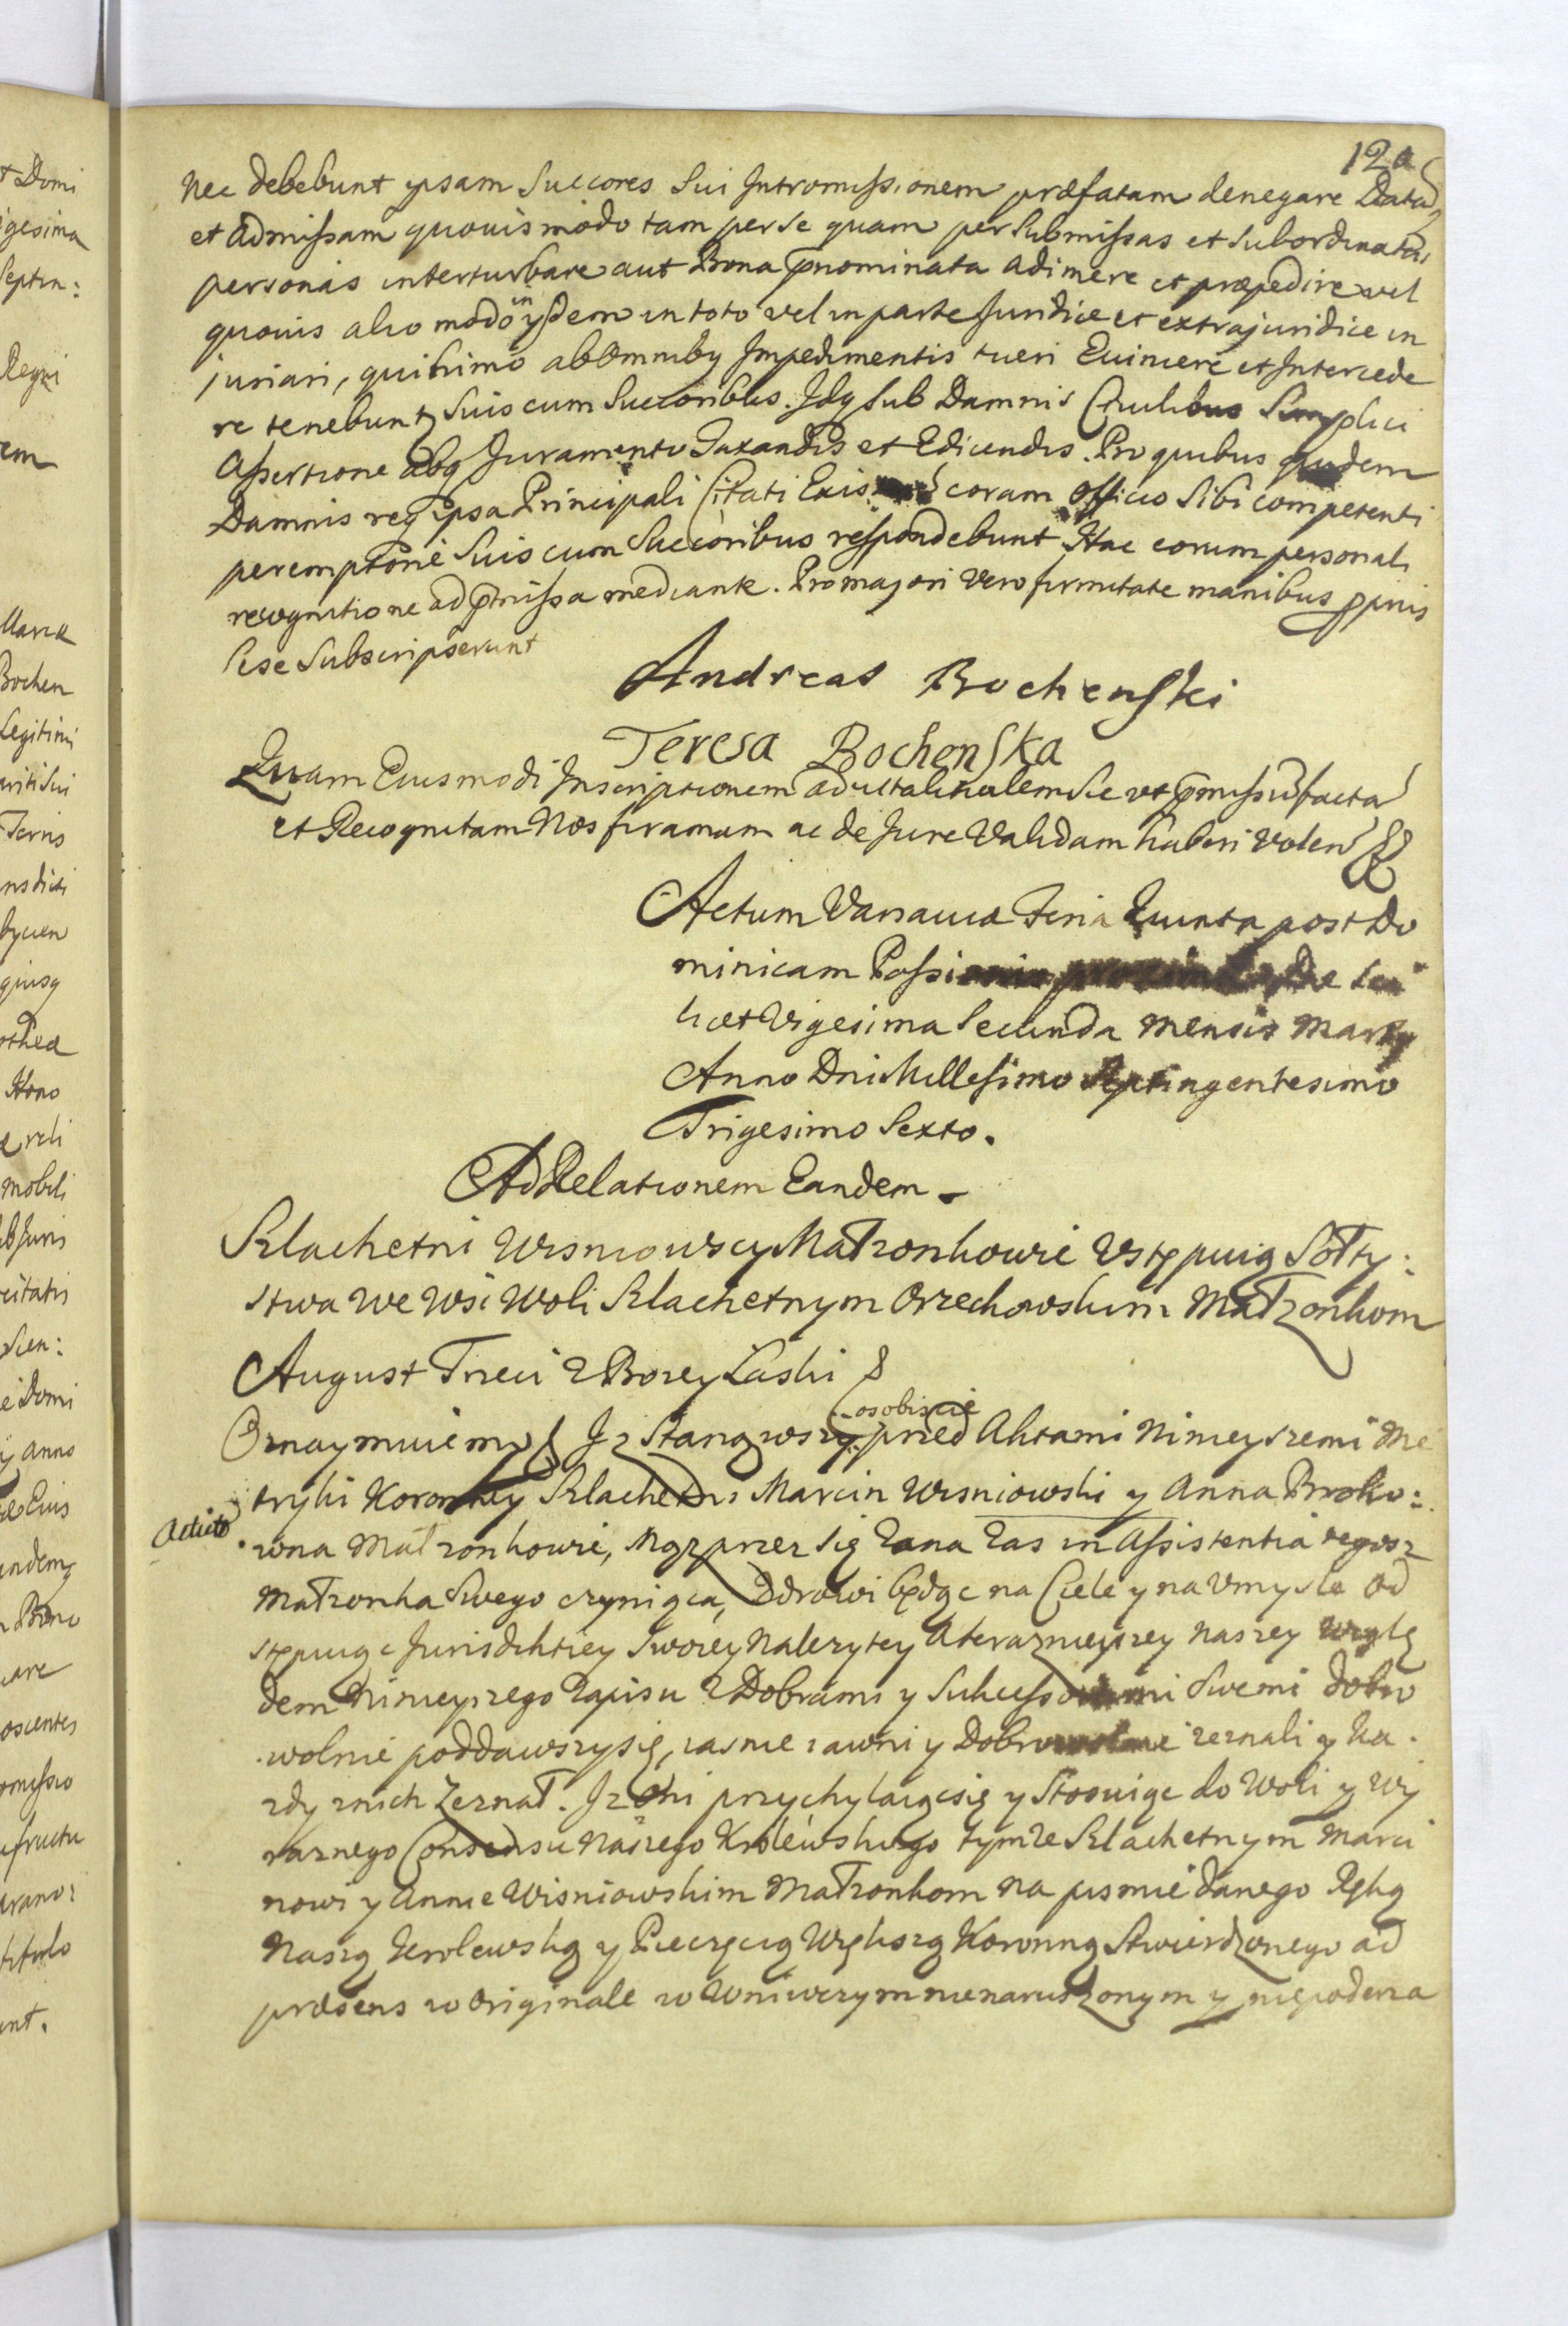 120
nec debebunt ipsam Succores Sui Intromissionem præfatam denegare Datã
et Admissam quouis modo tam per se quam per Submissas et subordinatas
personas interturbare aut Bona pnominata adimere et præpedire vel
quouis alio modo in ysdem in toto vel in parte Juridice et extrajuridice in
juriari, quinimo ab Omniby Impedimentis tueri Euincere et Intercede
re tenebunt Suis cum Succoribus. Idq sub Damnis Culibus Simplici
Assertione absq Juramento Taxandis et Edicendis. Pro quibus quidem
Damnis req ipsa Principali Citati coram Officio Sibi competenti
peremptorie Suis cum Succoribus respondebunt Hac eorum personali
recognitione ad pmissa mediante. Pro majori vero firmitate manibus pprijs
sese Subscripserunt
Andreas Bochenski
Teresa Bochenska
Quam Eiusmodi Inscriptionem ad vitalitialem Sic ut pmissũ facta
et Recognitam Nos firamam ac de Jure Validam haberi volen
Actum Varsauia Feria Quinta post Do
minicam Passi Die sci
licet Vigesima Secunda Mensis Martij
Anno Dni Millesimo Septingentesimo
Trigesimo Sexto.
Ad Relationem Eandem
Szlachetni Wisniowscy Małzonkowie Vstępuią Sołty:
stwa We Wsi Woli Szlachetnym Orzechowskim Małzonkom
August Trzeci z Bozey Łaski
Oznaymuiemy Jz Stanąwszy osobiscie przed Aktami Ninieyszemi Me
tryki Koronney Szlachetni Marcin Wisniowski y Anna Broko:
Actico
wna Małzonkowie, Mąz przez Się Zona Zas in Assistentia tegosz
Małzonka Swego czyniąca, Zdrowi będąc na Ciele y na Vmysle Od
stępuiąc Jurisdiktiey Swoiey Nalezytey A teraznieyszey Naszey Wzglę
dem Ninieyszego Zapisu z Dobrami y Sukcessorami Swemi dobro
wolnie poddawszysię, iasnie iawni y Dobrowolnie zeznali y Ka
zdy znich Zeznał. Jz Oni przychylaiącsię y Stosuiąc do Woli y Wy
raznego Consensu Naszego Krolewskiego tymze Szlachetnym Marci
nowi y Annie Wisniowskim Małzonkom Na pismie danego Ręką
Naszą Krolewską y Pieczęcią Większą Koronną Stwierdzonego ad
præsens w Originale w Wniwczym nienaruszonym y niepodeyza